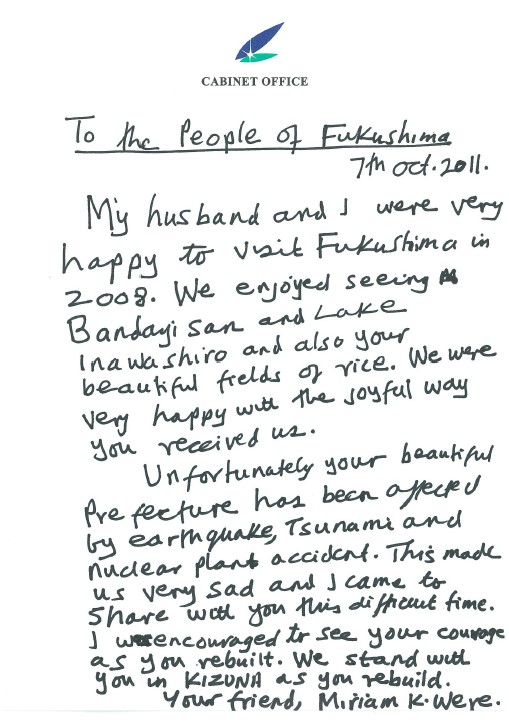 CABINET OFFICE
To the People of Fukushima
7th Oct. 2011.
My husband and I were very
happy to visit Fukushima in
2008. We enjoyed seeing
Bandayi san and Lake
Inawashiro and also your
beautiful fields of rice. We were
very happy with the joyful way
you received us.
Unfortunately your beautiful
Prefecture has been affected
by earthquake, Tsunami and
nuclear plant accident. This made
us very sad and I came to
share with you this difficult time.
I was encouraged to see your courage
as you rebuilt. We stand with
you in KIZUNA as you rebuild.
Your friend, Miriam K. Were.